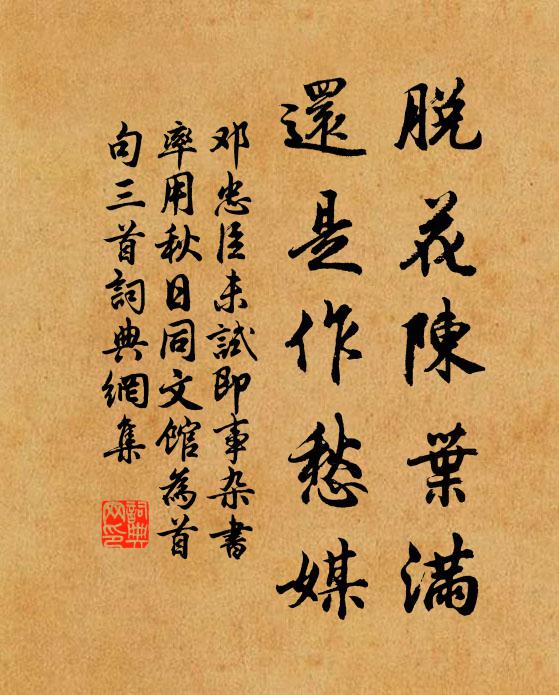 脫花陳葉滿
還是作愁媒
邓忠臣未試即事杂書
率用秋日同文館為首
句三首詞典網集
詞典
网印